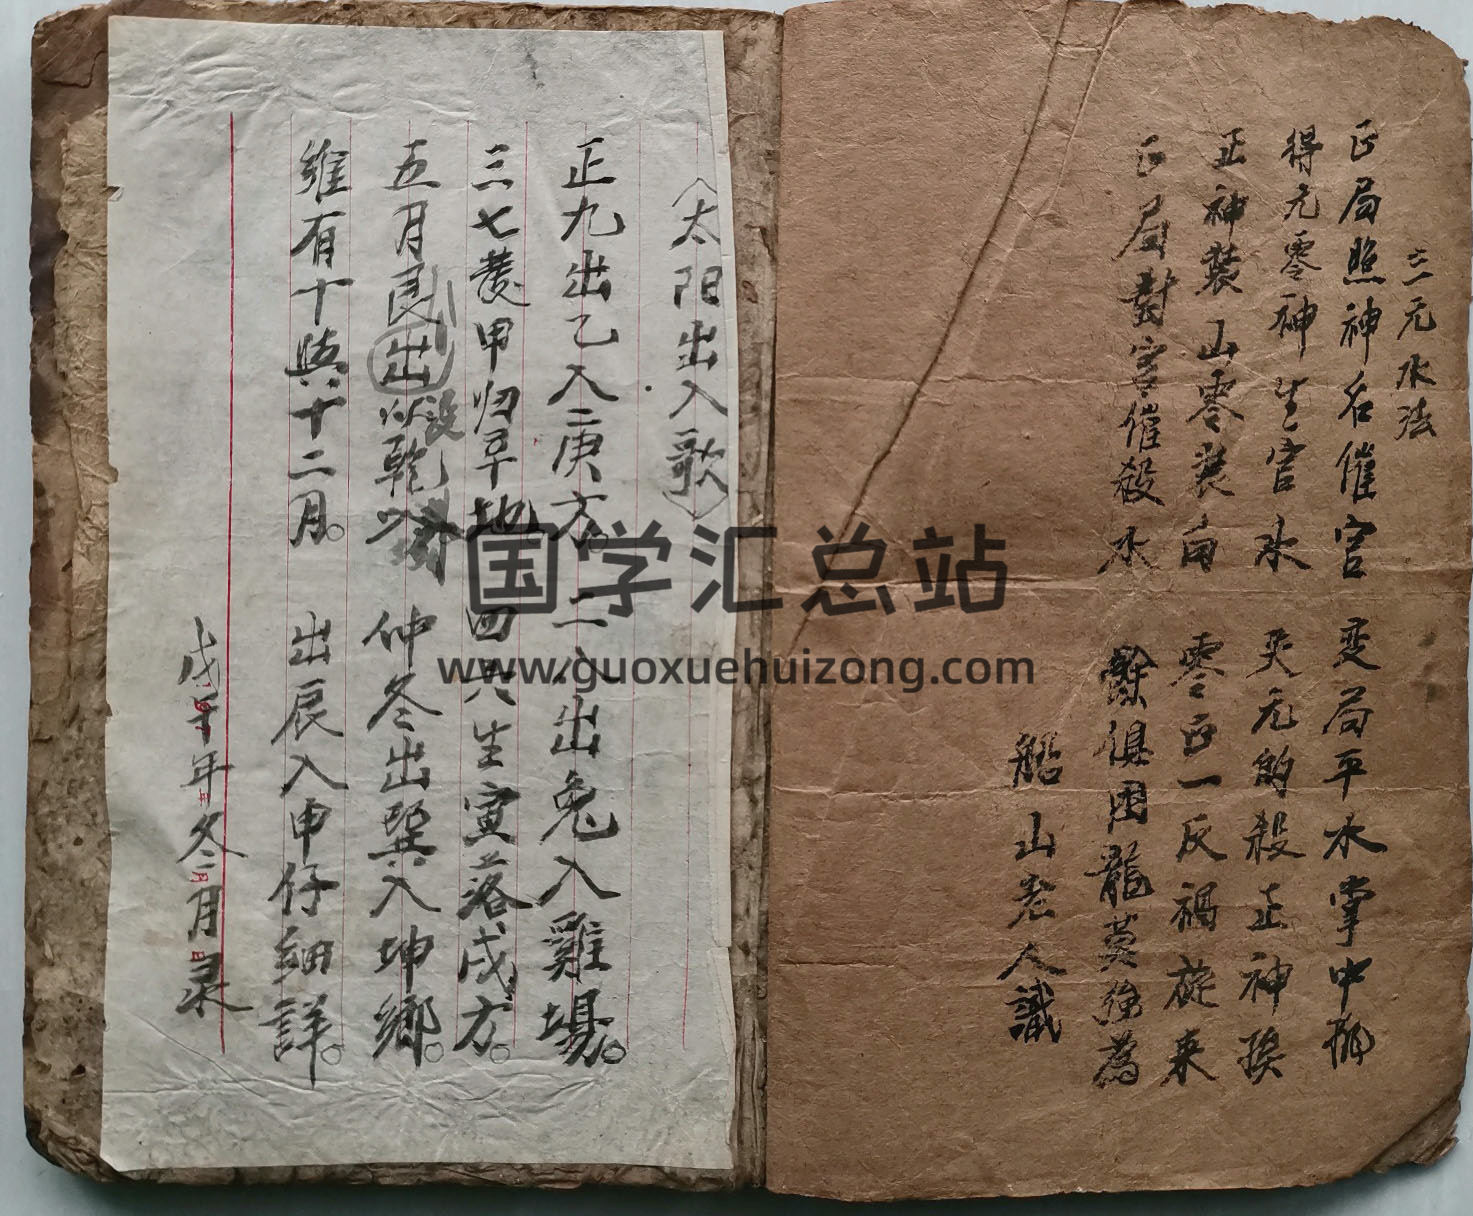 三元水法
正局照神名催官 变局平水掌中挑
得元零神生官水 失元的殺正神挨
正神装山零装向 零正一反禍旋来
正局對宫催殺水 餘俱困龍莫強為
船山老人識
（太阳出入歌）
正九出乙入庚方。二八出兔入雞場。
三七發甲归辛地 四六生寅落戌方。
五月艮出以乾 仲冬出巽入坤鄉。
没
維有十與十二月。出辰入申仔細詳。
戊午年冬月录
国学汇总站
www.guoxuehuizong.com